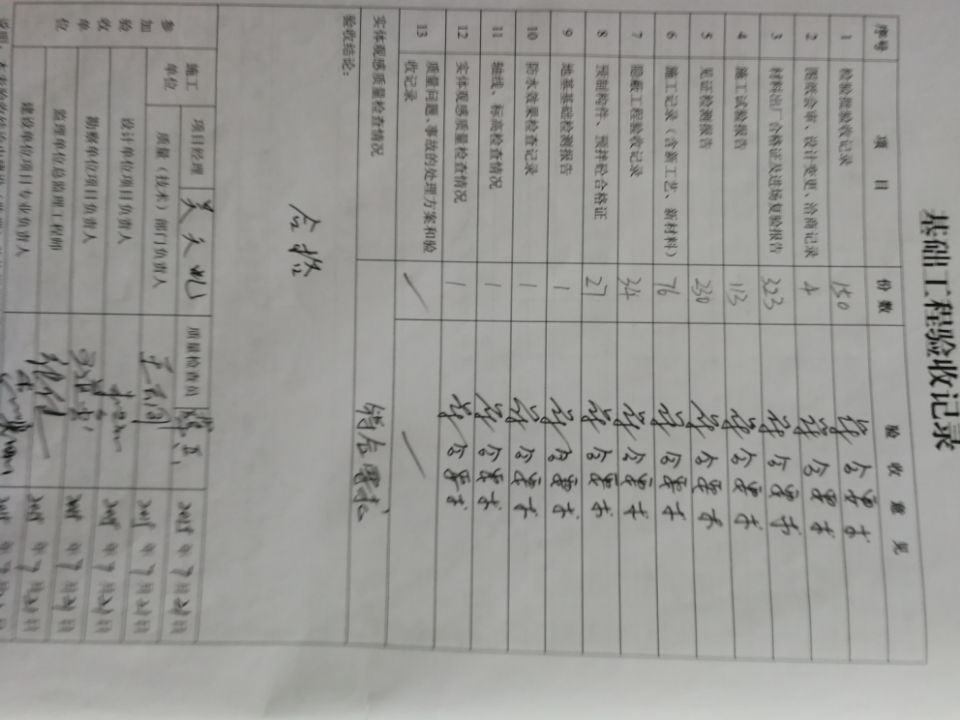 基础工程验收记录
序号 项 目 份数 验 收 意 见
1 检验批验收记录 150 符合要求
2 图纸会审、设计变更、洽商记录 4 符合要求
3 材料出厂合格证及进场复验报告 323 符合要求
4 施工试验报告 113 符合要求
5 见证检测报告 230 符合要求
6 施工记录（含新工艺、新材料） 76 符合要求
7 隐蔽工程验收记录 34 符合要求
8 预制构件、预拌砼合格证 27 符合要求
9 地基基础检测报告 1 符合要求
10 防水效果检查记录 1 符合要求
11 轴线、标高检查情况 1 符合要求
12 实体观感质量检查情况 1 符合要求
13 质量问题、事故的处理方案和验
收记录
实体观感质量检查情况 符合要求
验收结论：
合格
参加验收单位
施工单位
项目经理 质量检查员 年7月
质量（技术）部门负责人 年7月
设计单位项目负责人 年7月
勘察单位项目负责人 年7月
监理单位总监理工程师 年7月
建设单位项目专业负责人